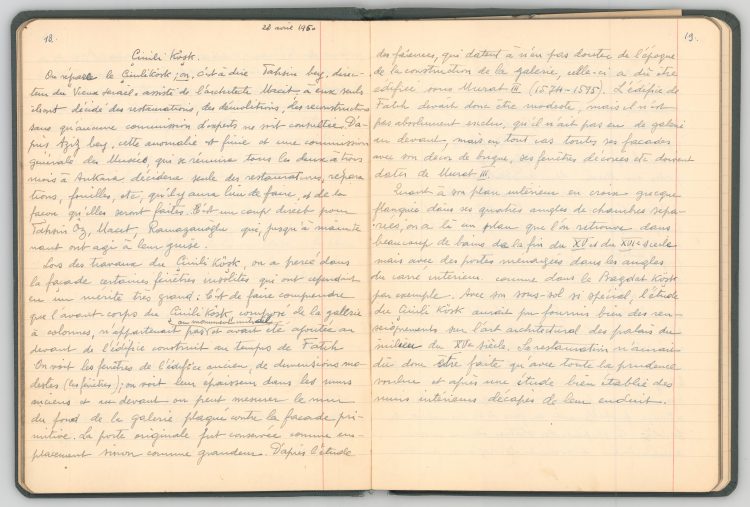 18.
26 avril 1950
Cinili Kösk.
On répare le Çinili Kösk; on, c'est à dire Tahsin bey, direc-
teur du Vieux serail, assisté de l'architecte Macit, à eux seuls
ils ont décidé des restaurations, des démolitions, des reconstructions
sans qu'aucune commission d'experts ne soit consultée. D'a-
près Aziz bey, cette anomalie est finie et une commission
générale des Musées, qui se réunira tous les deux à trois
mois à Ankara décidera seule des restaurations, répara-
tions, fouilles, etc, qu'il y aura lieu de faire, et de la
façon qu'elles seront faites. C'est un coup direct pour
Tahsin Öz, Macit, Ramazanoglu qui, jusqu'à mainte
nant ont agi à leur guise.
Lors des travaux du Çinili Kösk, on a percé dans
la façade certaines fenêtres insolites qui ont cependant
eu un mérite très grand: C'est de faire comprendre
que l'avant corps du Çinili Kösk, composé de la galerie
à colonnes, n'appartenait pas au monument initial et avait été ajoutée au
devant de l'édifice construit au temps de Fatih
On voit les fenêtres de l'édifice ancien, de dimensions mo-
destes (les fenêtres); on voit leur épaisseur dans les murs
anciens et au devant on peut mesurer le mur
du fond de la galerie plaqué contre la façade pri-
mitive. La porte originale fut conservée comme em-
placement sinon comme grandeur. D'après l'étude
19.
des faïences, qui datent à n'en pas douter de l'époque
de la construction de la galerie, celle-ci a dû être
édifiée sous Murat III (1574-1595). L'édifice de
Fatih devait donc être modeste, mais il n'est
pas absolument exclu, qu'il n'ait pas eu de galerie
au devant, mais en tout cas toutes ses façades
avec son decor de brique, ses fenêtres décorées etc doivent
dater de Murat III.
Quant à son plan intérieur en croix grecque
flanquée dans ses quatre angles de chambres sépa-
rées, on a là un plan que l'on retrouve dans
beaucoup de bains de la fin du XV et du XVIe siècle
mais avec des portes ménagées dans les angles
du carré intérieur. comme dans le Bagdat Kösk
par exemple. Avec son sous-sol si spécial, l'étude
du Çinili Kösk aurait pu fournir bien des ren-
seignements sur l'art architectural des palais du
milieu du XVe siècle. Sa restauration n'aurait
dû donc être faite qu'avec toute la prudence
voulue et après une étude bien établie des
murs intérieurs décapés de leur enduit.